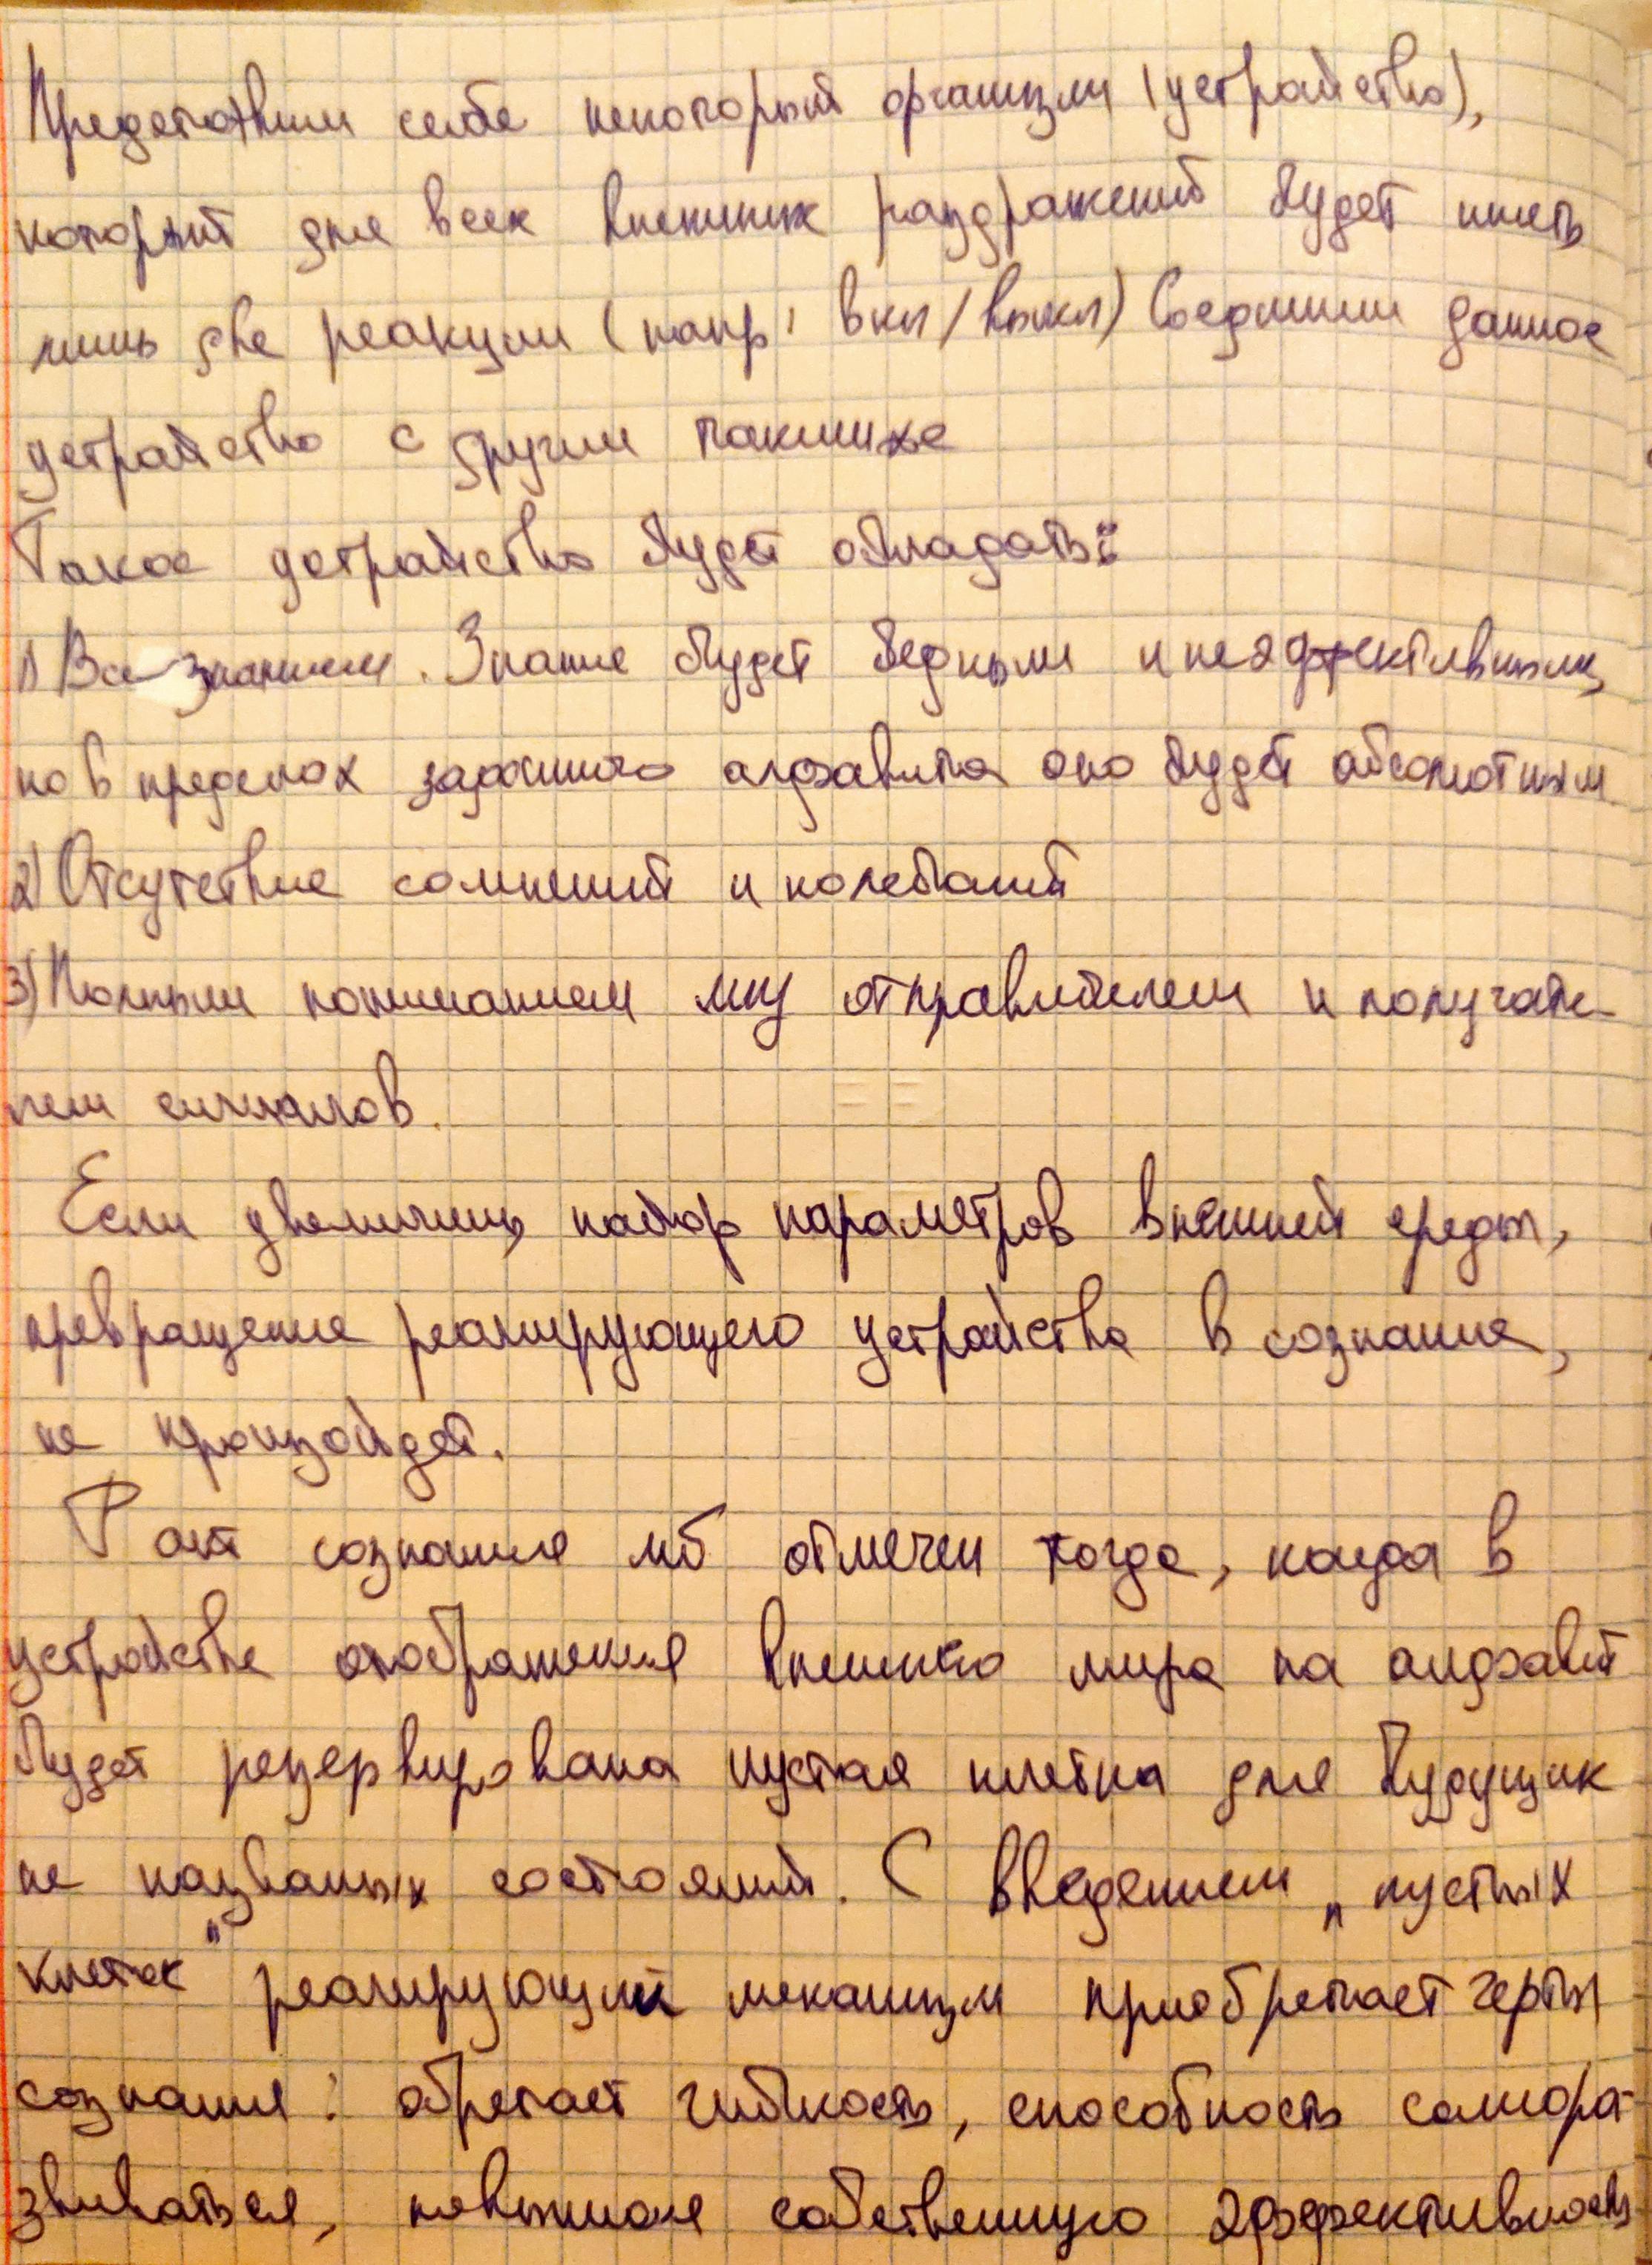 Представим себе некоторый организм (устройство),
который для всех внешних раздражений будет иметь
лишь две реакции (напр: вкл/выкл) Соединим данное
устройство с другим таким же
Такое устройство будет обладать:
1) Всезнанием. Знание будет бедным и неэффективным,
но в пределах заданного алфавита оно будет абсолютным
2) Отсутствие сомнений и колебаний
3) Полным пониманием мжу отправителем и получате-
лем сигналов.
Если увеличить набор параметров внешней среды,
превращение реагирующего устройства в сознание,
не произойдет.
Факт сознания мб отмечен тогда, когда в
устройстве отображения внешнего мира на алфавит
будет резервирована пустая клетка для будущих
не названых состояний. С введением „пустых
клеток" реагирующий механизм приобретает черты
сознания: обретает гибкость, способность самора-
звиваться, повышая собственную эффективность